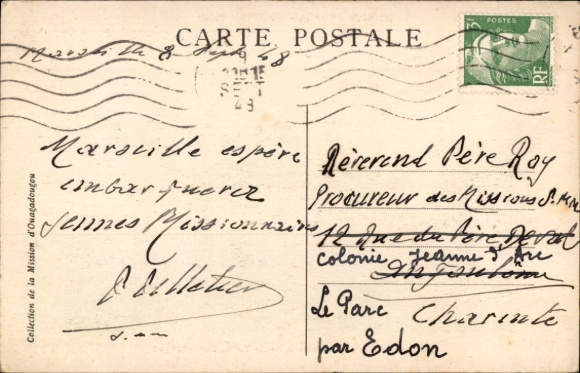 CARTE POSTALE
POSTES
3F
RF
Marseille 8 Sept 48
9
SEPT
48
Marseille espère
embarquerez
jeunes Missionnaires
Collection de la Mission d'Ouagadougou
Révérend Père Roy
Procureur des Missions
12 Rue du Père Deval
colonie Jeanne d'Arc
Angoulême
Le Parc
Charente
par Edon